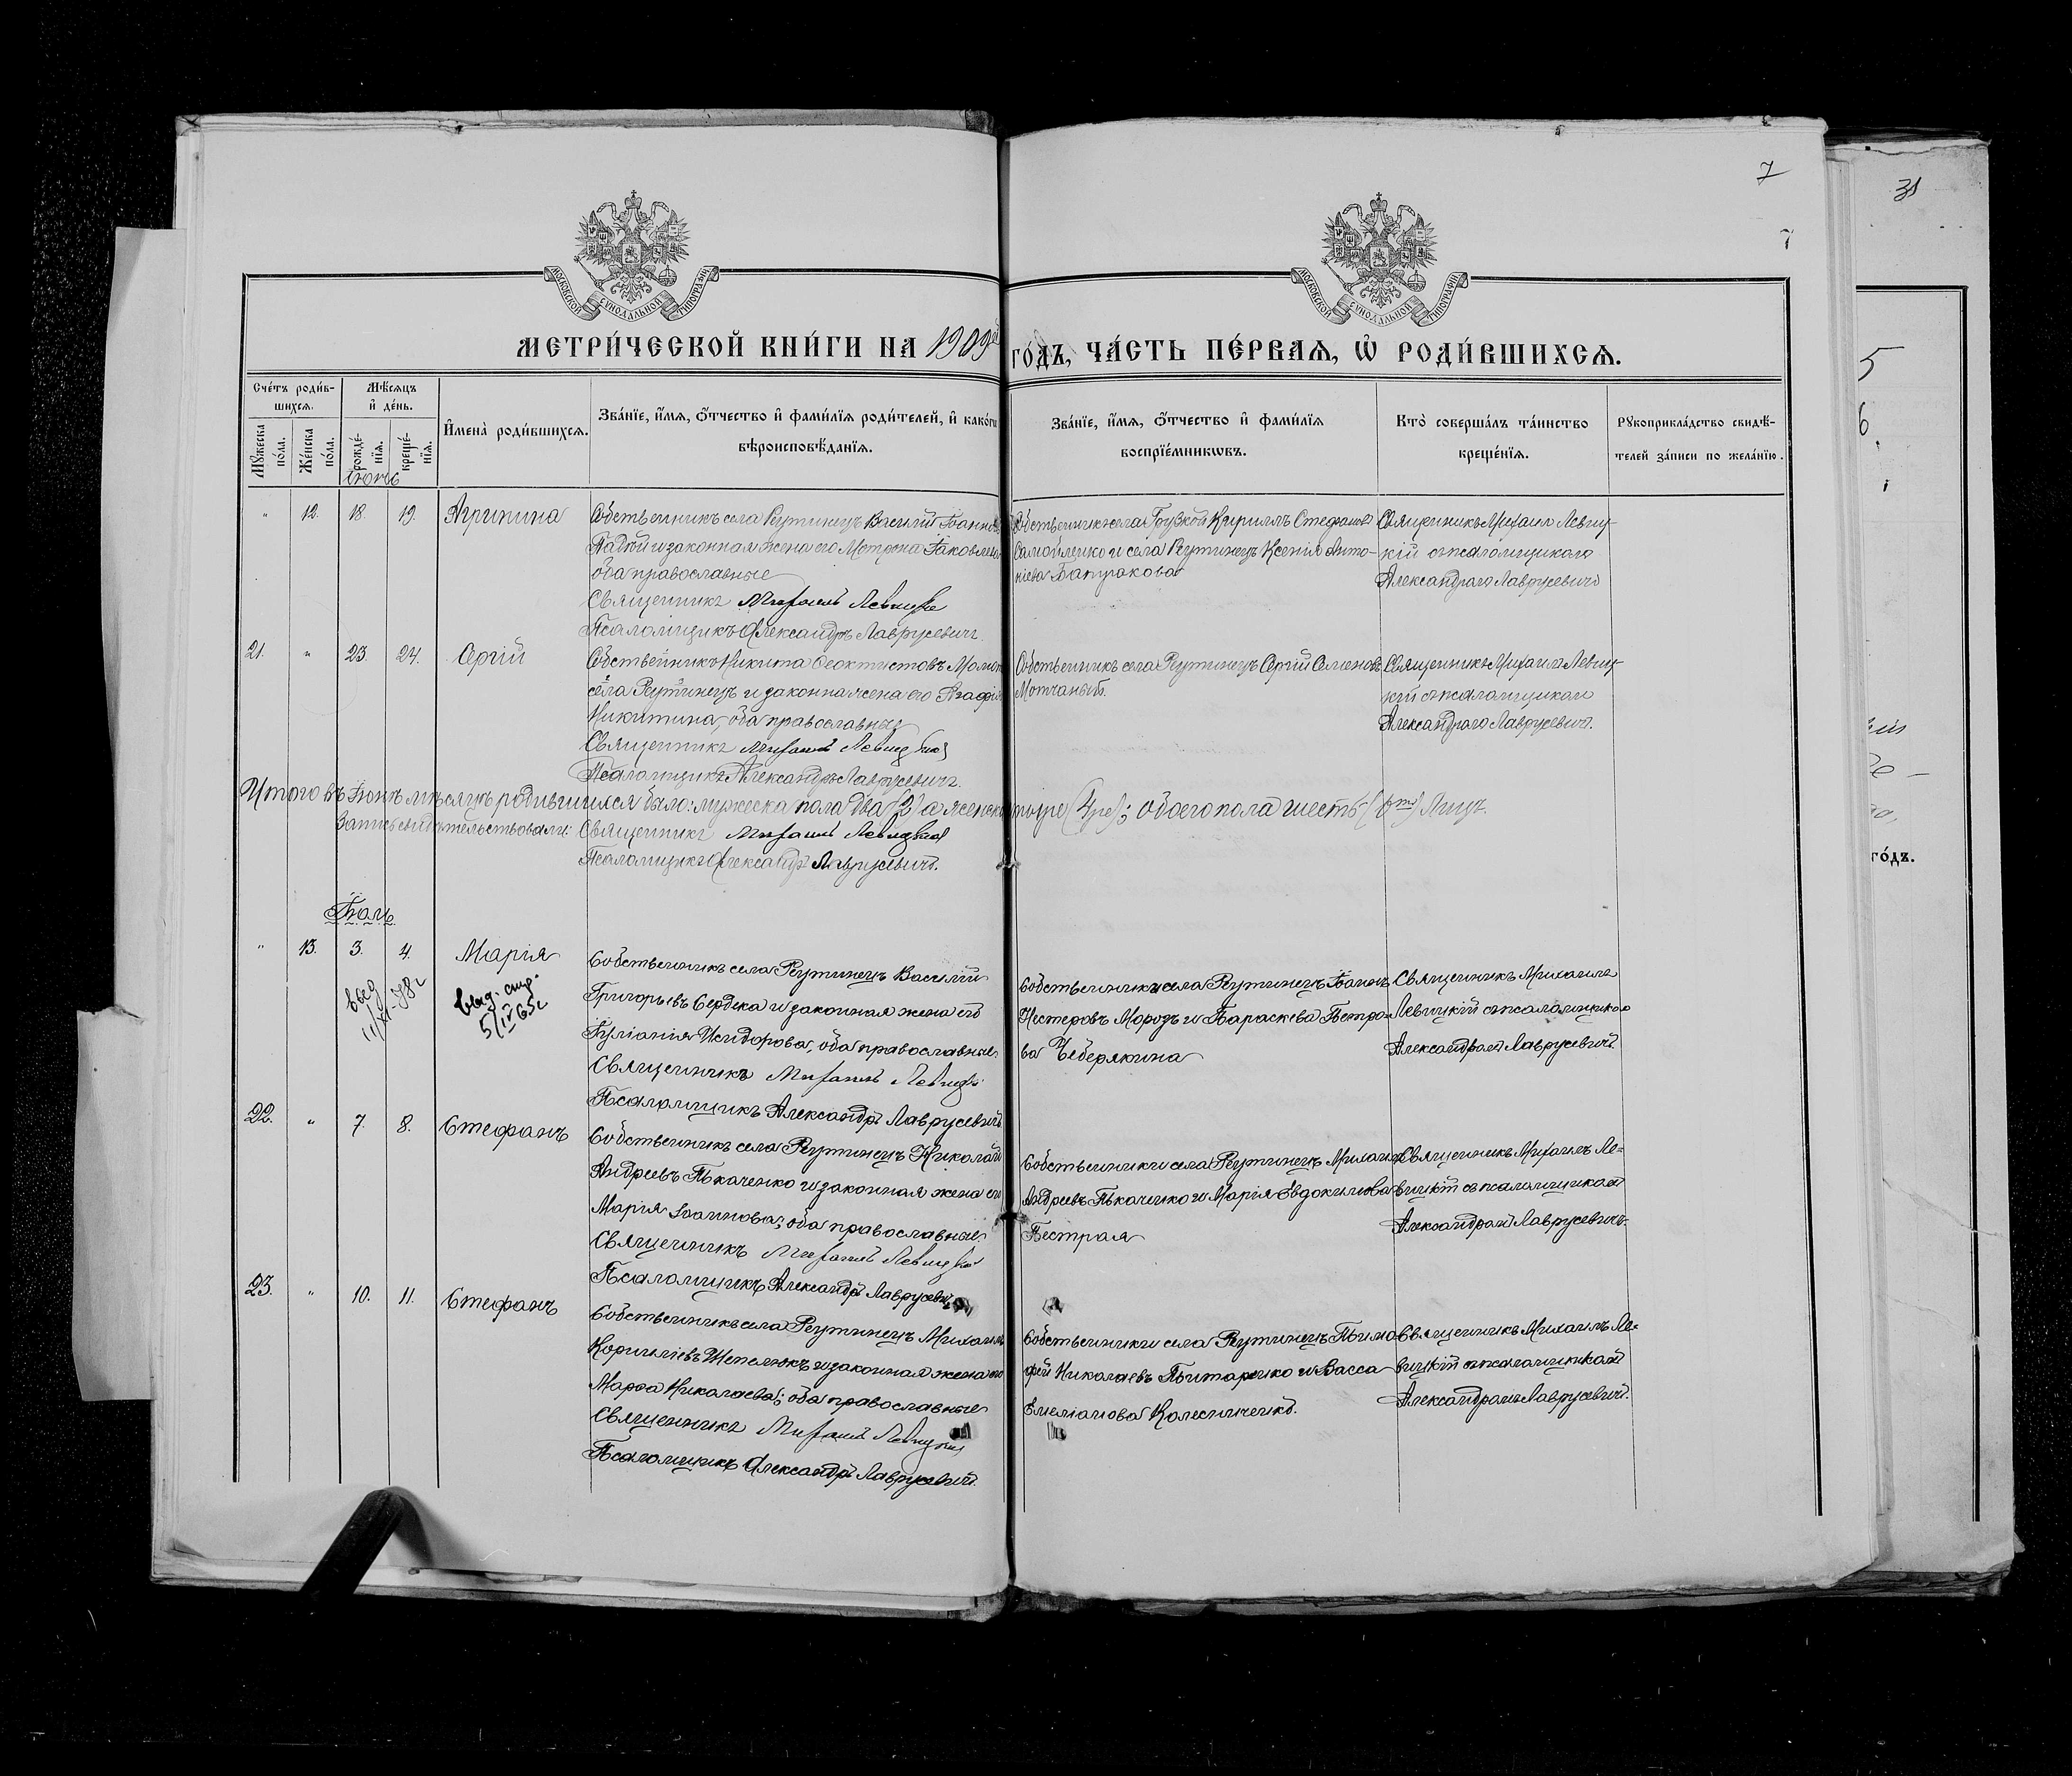 7
31
7
МОСКОВСКОЙ СѴНОДАЛЬНОЙ ТИПОГРАФІИ
МОСКОВСКОЙ СѴНОДАЛЬНОЙ ТИПОГРАФІИ
МЕТРИ́ЧЕСКОЙ КНИ́ГИ НА 1909й ГО́ДЪ, ЧА́СТЬ ПЕ́РВАѦ, Ѡ РОДИ́ВШИХСѦ.
Сче́тъ роди́в-
шихсѧ.
Мꙋжеска по́ла.
Же́нска по́ла.
Мѣ́сѧцъ
и҆ де́нь.
рожде́-
нїѧ.
креще́-
нїѧ.
И҆мена̀ роди́вшихсѧ.
Зва́нїе, и҆́мѧ, ѻ҆́тчество и҆ фами́лїѧ роди́телей, и҆ како́гѡ
вѣроисповѣ́данїѧ.
Зва́нїе, и҆́мѧ, ѻ҆́тчество и҆ фами́лїѧ
воспрїе́мникѡвъ.
Кто̀ соверша́лъ та́инство
креще́нїѧ.
Рꙋкоприкла́дство свидѣ́-
телей за́писи по жела́нїю.
Іюнь
" 12. 18. 19. Агрипина
Собственникъ села Реутинецъ Василій Іоанновъ
и законная жена его Матрона Іаковлева
оба православные
Священникъ Михаилъ Левицкій
Псаломщикъ Александръ Лаврусевичъ.
Собственники села Грузкой Кириллъ Стефановъ
Самойленко и села Реутинецъ Ксенія Анто-
ніева
Священникъ Михаилъ Левиц-
кій съ псаломщикомъ
Александромъ Лаврусевичъ
21. " 23. 24. Сергій
Собственникъ Никита Феоктистовъ
села Реутинецъ и законная жена его Агафія
Никитина, оба православные
Священникъ Михаилъ Левицкій
Псаломщикъ Александръ Лаврусевичъ.
Собственникъ села Реутинецъ Сергій Семеновъ
Мотчаный.
Священникъ Михаилъ Левиц-
кій съ псаломщикомъ
Александромъ Лаврусевичъ.
Итого въ Іюнѣ мѣсяцѣ родившихся было: мужеска пола два (2) а женска четыре (4ре); обоего пола шесть (6ть) лицъ.
Запись свидѣтельствовали: Священникъ Михаилъ Левицкій
Псаломщикъ Александръ Лаврусевичъ.
Іюль
" 13. 3. 4. Марія
выд
11/XI-78г
выд. спр.
5/IV 65г
Собственникъ села Реутинецъ Василій
Григорьевъ Сердека и законная жена его
Іуліанія Исидорова, оба православные
Священникъ Михаилъ Левицкій
Псаломщикъ Александръ Лаврусевичъ
Собственники села Реутинецъ Іоаннъ
Нестеровъ Морозъ и Параскева Петро-
ва Чеберякина
Священникъ Михаилъ
Левицкій съ псаломщикомъ
Александромъ Лаврусевичъ.
22. " 7. 8. Стефанъ
Собственникъ села Реутинецъ Николай
Андреевъ Ткаченко и законная жена его
Марія Іоаннова, оба православные
Священникъ Михаилъ Левицкій
Псаломщикъ Александръ Лаврусевичъ
Собственники села Реутинецъ Михаилъ
Андреевъ Ткаченко и Марія Евдокимова
Пестрая
Священникъ Михаилъ Ле-
вицкій съ псаломщикомъ
Александромъ Лаврусевичъ.
23. " 10. 11. Стефанъ
Собственникъ села Реутинецъ Михаилъ
Корниліевъ Шепелюкъ и законная жена его
Марѳа Николаева; оба православные
Священникъ Михаилъ Левицкій
Псаломщикъ Александръ Лаврусевичъ.
Собственники села Реутинецъ Тимо-
фей Николаевъ Титаренко и Васса
Емеліанова Колесниченко.
Священникъ Михаилъ Ле-
вицкій съ псаломщикомъ
Александромъ Лаврусевичъ.
5
6.
го́дъ.